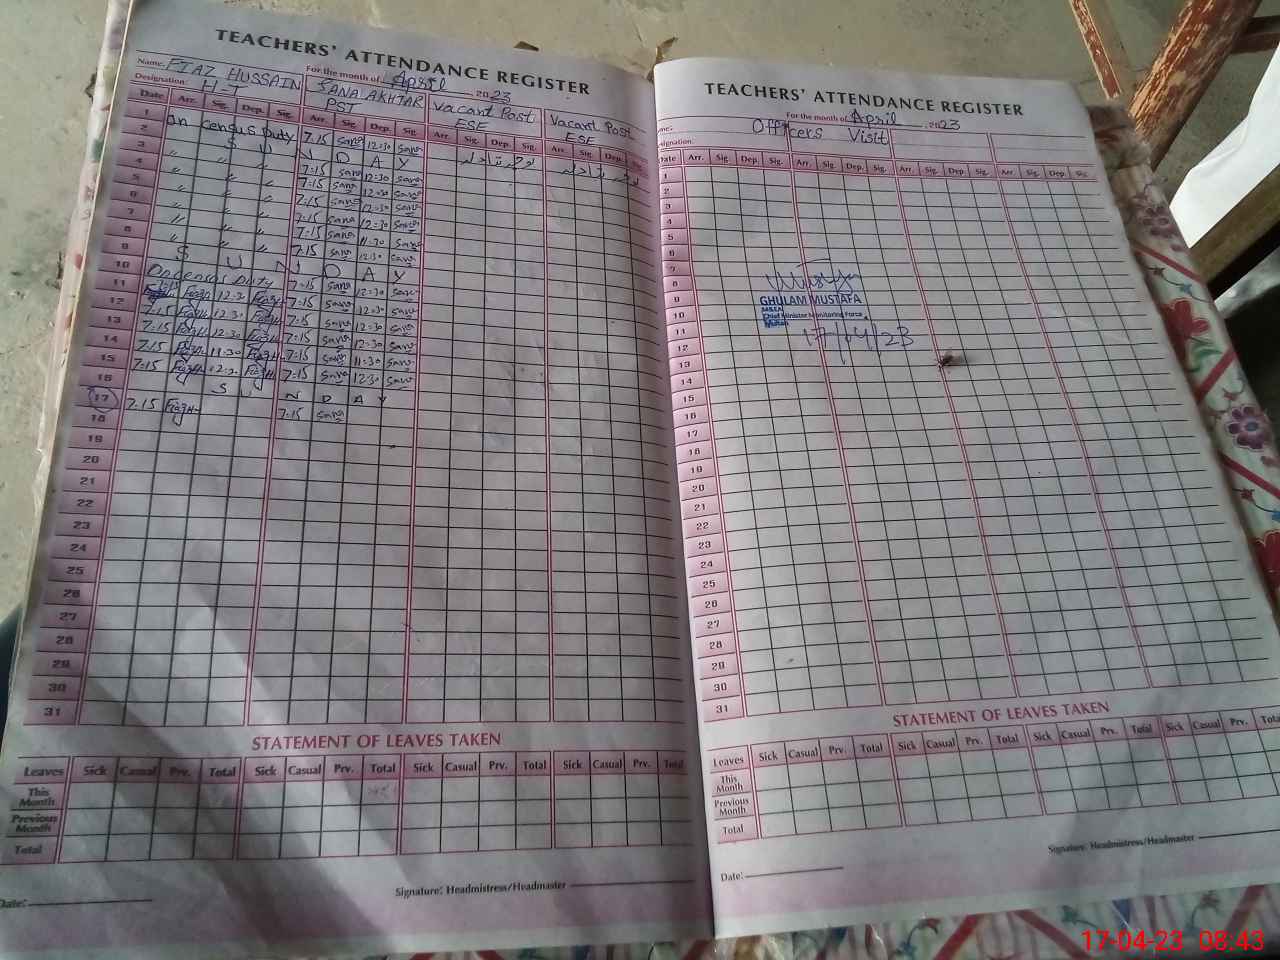 TEACHERS' ATTENDANCE REGISTER
Name. FIAZ HUSSAIN For the month of April 2023
Designation: H-T SANA AKHTAR PST Vacant Post ESE Vacant Post ESE
Date Arr. Sig. Dep. Sig. Arr. Sig. Dep. Sig. Arr. Sig. Dep. Sig. Arr. Sig. Dep. Sig.
1 On Census Duty 7:15 Sana 12:30 Sana
2 S U N D A Y
3 " " " 7:15 Sana 12:30 Sana
4 " " " 7:15 Sana 12:30 Sana
5 " " " 7:15 Sana 12:30 Sana
6 " " " 7:15 Sana 12:30 Sana
7 " " " 7:15 Sana 11:30 Sana
8 " " " 7:15 Sana 12:30 Sana
9 S U N D A Y
10 On Census Duty 7:15 Sana 12:30 Sana
11 7:15 12:30 7:15 Sana 12:30 Sana
12 7:15 12:30 7:15 Sana 12:30 Sana
13 7:15 12:30 7:15 Sana 12:30 Sana
14 7:15 11:30 7:15 Sana 11:30 Sana
15 7:15 7:15 Sana 12:30 Sana
16 S U N D A Y
17 7:15 7:15 Sana
18
19
20
21
22
23
24
25
26
27
28
29
30
31
STATEMENT OF LEAVES TAKEN
Leaves Sick Casual Prv. Total Sick Casual Prv. Total Sick Casual Prv. Total Sick Casual Prv. Total
This Month
Previous Month
Total
Signature: Headmistress/Headmaster
Date:
TEACHERS' ATTENDANCE REGISTER
For the month of April 2023
Name. Officers Visit
Designation:
Date Arr. Sig. Dep. Sig. Arr. Sig. Dep. Sig. Arr. Sig. Dep. Sig. Arr. Sig. Dep. Sig.
1
2
3
4
5
6
7
8
9
10
11
12
13
14
15
16
17
18
19
20
21
22
23
24
25
26
27
28
29
30
31
GHULAM MUSTAFA
M&EA
Chief Minister Monitoring Force
Multan
17/04/23
STATEMENT OF LEAVES TAKEN
Leaves Sick Casual Prv. Total Sick Casual Prv. Total Sick Casual Prv. Total Sick Casual Prv. Total
This Month
Previous Month
Total
Signature: Headmistress/Headmaster
Date:
17-04-23 08:43